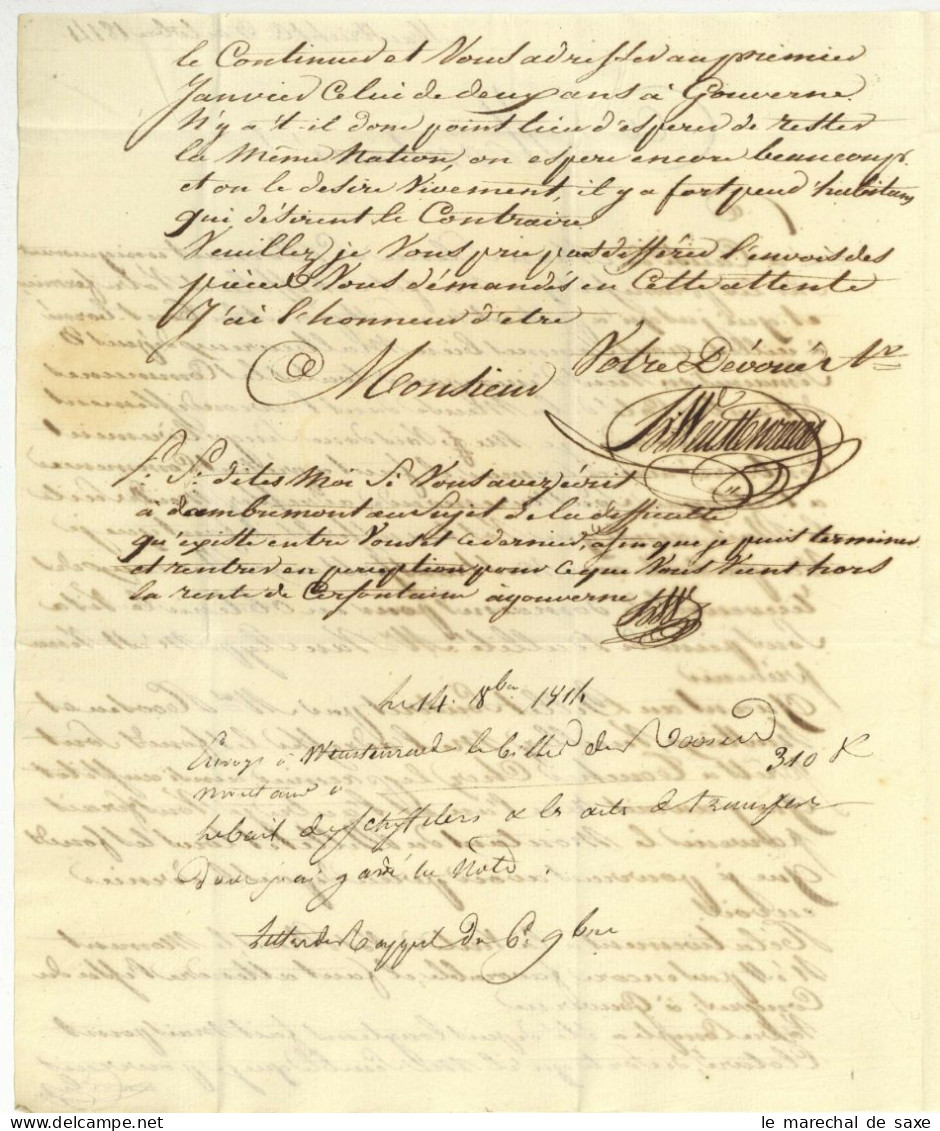 le Continuer et Vous adresser au premier
Janvier Celui de deux ans à Gouverne.
N'y a t-il donc point lieu d'esperer de rester
la Même Nation, on espere encore beaucoup.
et on le desire Vivement, il y a fort peu d'habitans
qui désirent le Contraire
Veuillez je Vous prie pas differer l'envois des
pièces Vous démandés en Cette attente
J'ai l'honneur d'etre
Monsieur Votre Dévoué
P. S. dites Moi Si Vous avez écrit
à dambrumont au Sujet de la difficulté
qu'existe entre Vous et ce dernier, afin que je puis terminer
et rentrer en perception pour ce que Vous Vient hors
la rente de Cerfontaine à gouverne
le 14. 8bre 1814
Envoyé à le billet de
montant à 310
le bail de & les acts de transfert
dont j'ai gardé la Note.
Lettre de Rappel du 6. 9bre
le marechal de saxe